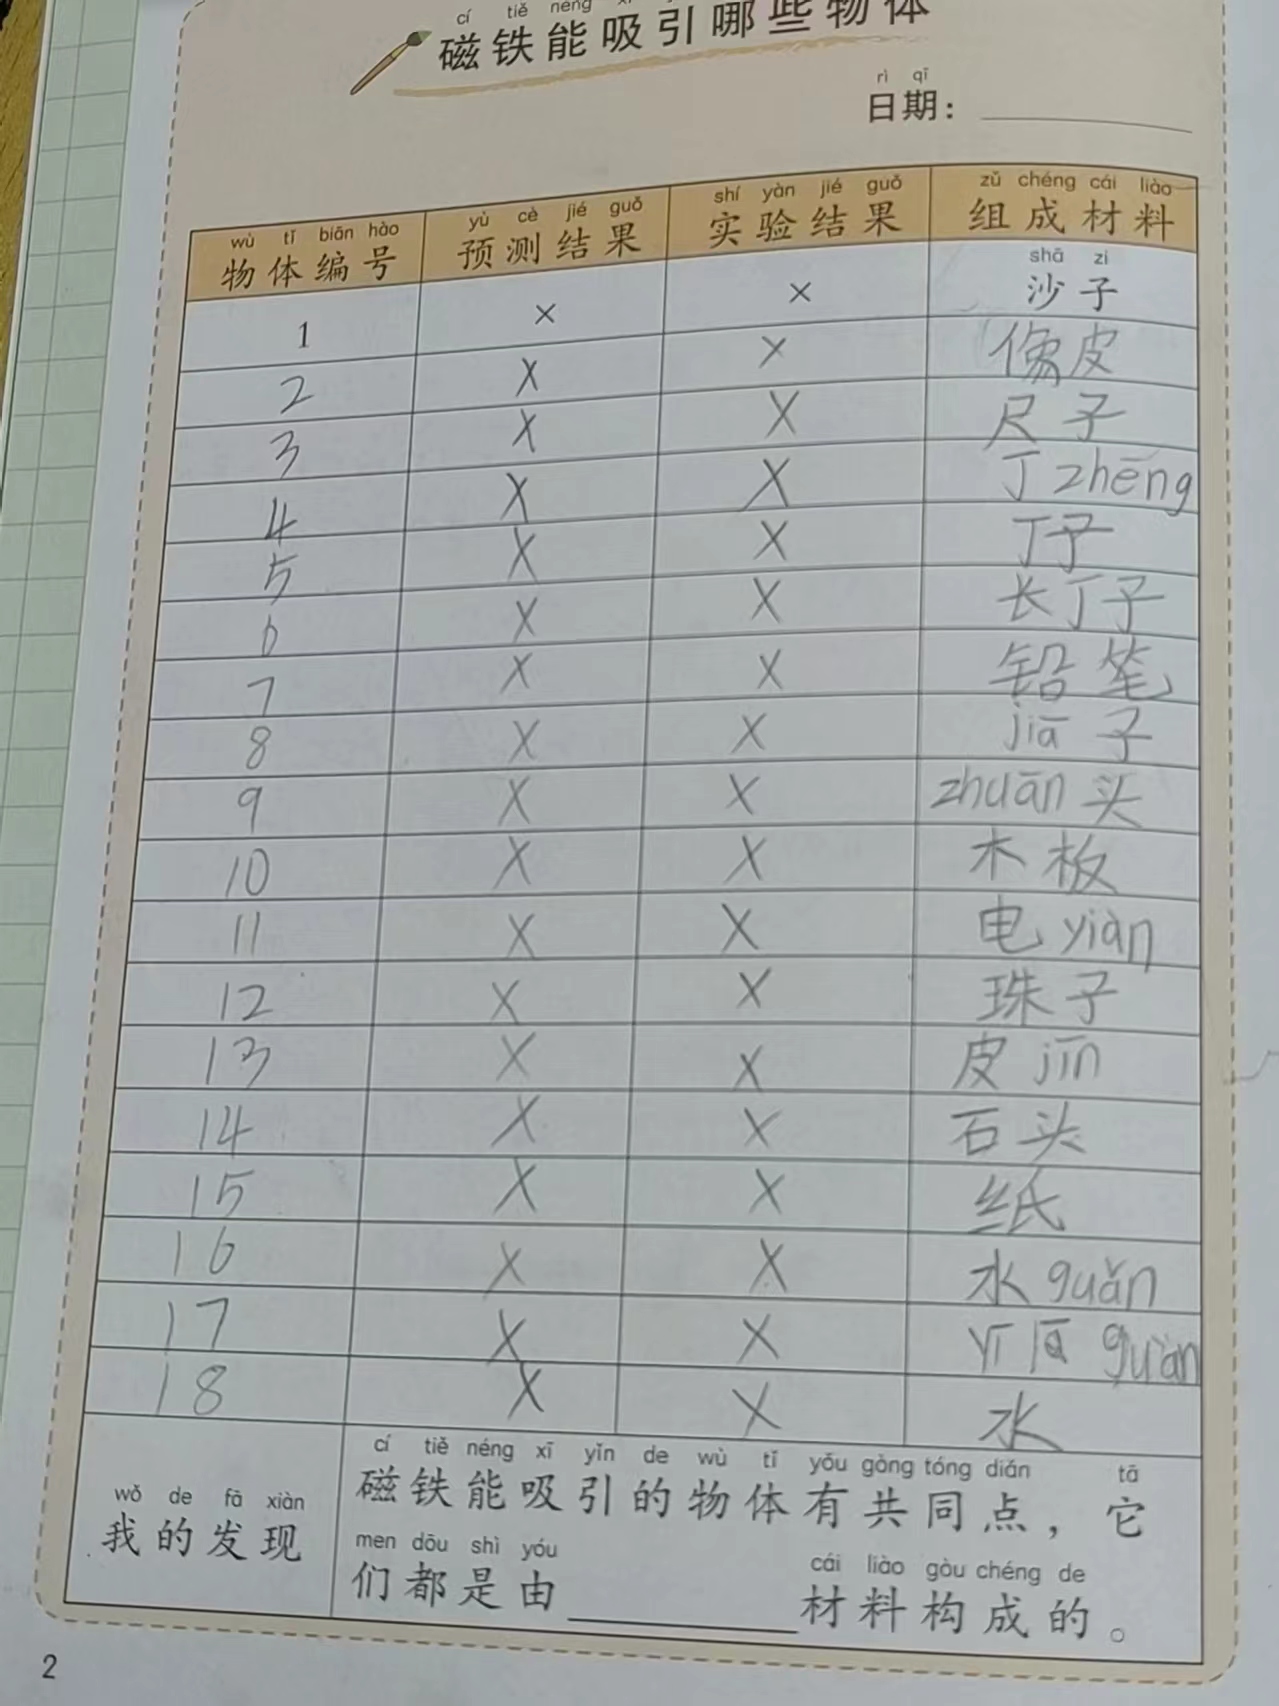 cí tiě néng
磁铁能吸引哪些物体
rì qī
日期：
wù tǐ biān hào yù cè jié guǒ shí yàn jié guǒ zǔ chéng cái liào
物体编号 预测结果 实验结果 组成材料
shā zi
1 × × 沙子
2 × × 像皮
3 × × 尺子
4 × × 丁zhēng
5 × × 丁子
6 × × 长丁子
7 × × 铅笔
8 × × jiā子
9 × × zhuān头
10 × × 木板
11 × × 电yiàn
12 × × 珠子
13 × × 皮jīn
14 × × 石头
15 × × 纸
16 × × 水guǎn
17 × × guàn
18 × × 水
cí tiě néng xī yǐn de wù tǐ yǒu gòng tóng diǎn tā
磁铁能吸引的物体有共同点，它
wǒ de fā xiàn
我的发现
men dōu shì yóu cái liào gòu chéng de
们都是由 材料构成的。
2